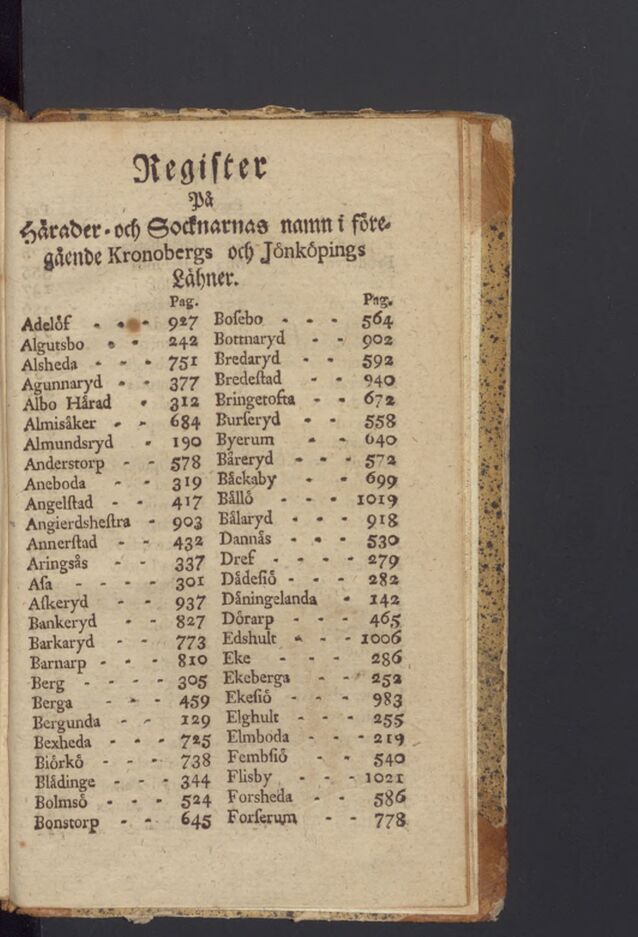 Regiſter
På
Härader- och Socknarnas namn i före-
gående Kronobergs och Jönköpings
Lähner.
Pag.
Adelöf - - - 927
Algutsbo - - 242
Alsheda - - - 751
Agunnaryd - - 377
Albo Hårad - 312
Almisåker - - 684
Almundsryd - 190
Anderstorp - - 578
Aneboda - - 319
Angelſtad - - 417
Angierdsheſtra - 903
Annerſtad - - 432
Aringsås - - 337
Aſa - - - - 301
Aſkeryd - - 937
Bankeryd - - 827
Barkaryd - - 773
Barnarp - - - 810
Berg - - - - 305
Berga - - 459
Bergunda - - 129
Bexheda - - 725
Biörkö - - - 738
Blädinge - - - 344
Bolmsö - - - 524
Bonstorp - - 645
Pag.
Boſebo - - - 564
Bottnaryd - - 902
Bredaryd - - 592
Bredeſtad - - 940
Bringetofta - - 672
Burſeryd - - 558
Byerum - - 640
Båreryd - - - 572
Båckaby - - 699
Bållö - - - 1019
Bålaryd - - - 918
Dannås - - - 530
Dref - - - - 279
Dådeſiö - - - 282
Dåningelanda - 142
Dörarp - - - 465
Edshult - - - 1006
Eke - - - 286
Ekeberga - - 252
Ekeſiö - - - 983
Elghult - - - 255
Elmboda - - - 219
Fembſiö - - 540
Flisby - - - 1021
Forsheda - - 586
Forſerum - - 778